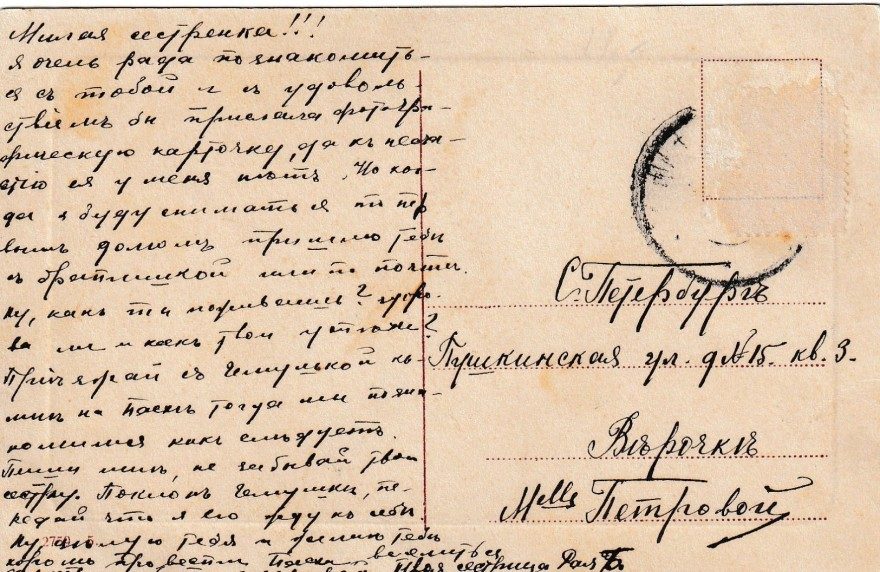 Милая сестренка!!!
я очень рада познакомить-
ся съ тобой и съ удоволь-
ствіемъ бы прислала фотогра-
фическую карточку, да къ несча-
стію ея у меня нѣтъ. Но ког-
да я буду сниматься то пер
вымъ долгомъ пришлю тебѣ
съ братишкой или по почтѣ.
ну, какъ ты поживаешь? здоро-
ва ли и какъ твои
Пріѣзжай съ ко
мнѣ на Пасху тогда мы позна-
комимся какъ слѣдуетъ.
Пиши мнѣ, не забывай твою
сестру. Поклонъ пе-
редай что я его жду къ себѣ
ну цѣлую тебя и желаю тебѣ
хорошо провести Пасху
Твоя сестрица
С. Петербургъ
Пушкинская ул. д № 15. кв. 3.
Вѣрочкѣ
Mlle Петровой